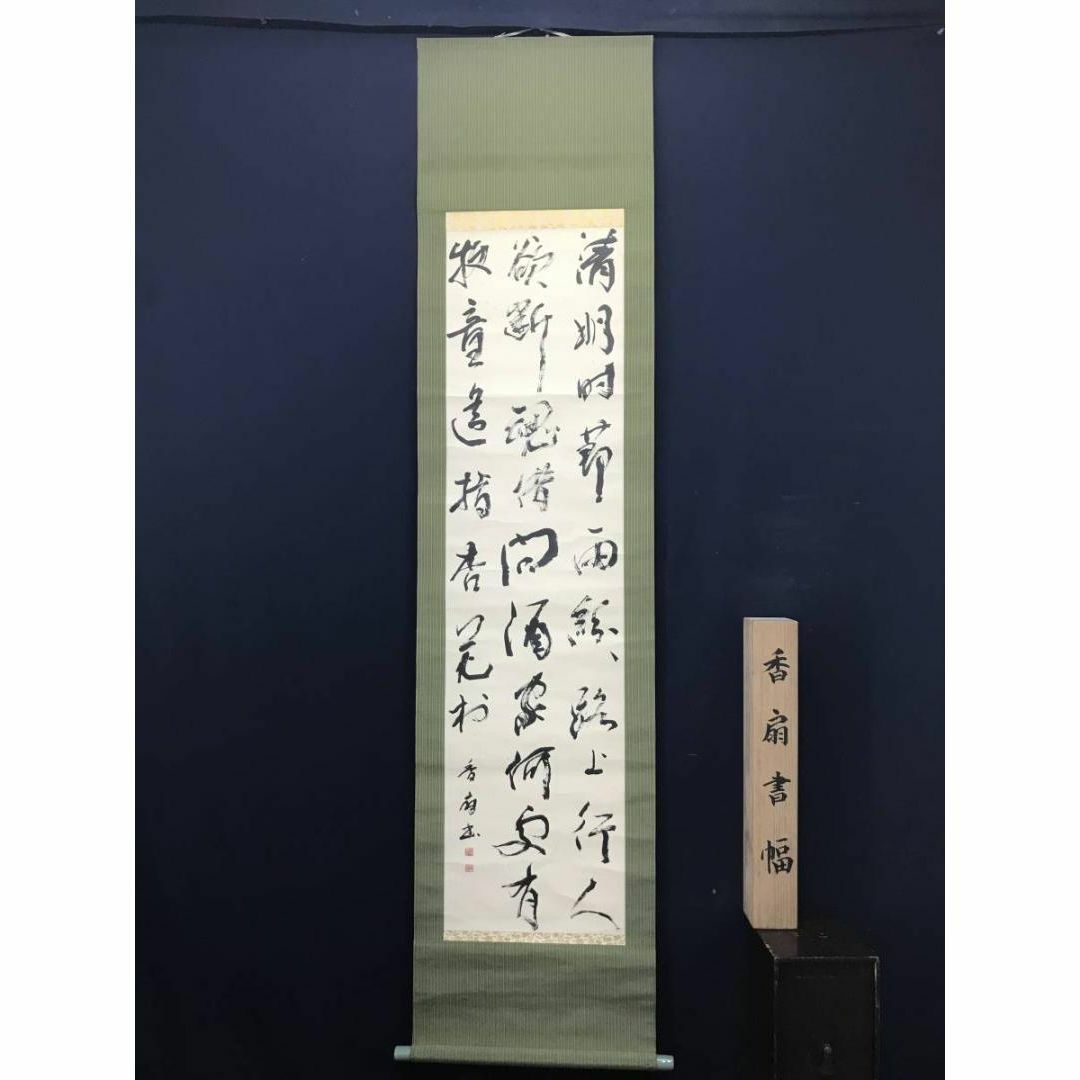 清明時節雨紛〻路上行人
欲斷魂借問酒家何處有
牧童遙指杏花村
香扇書
香扇書幅